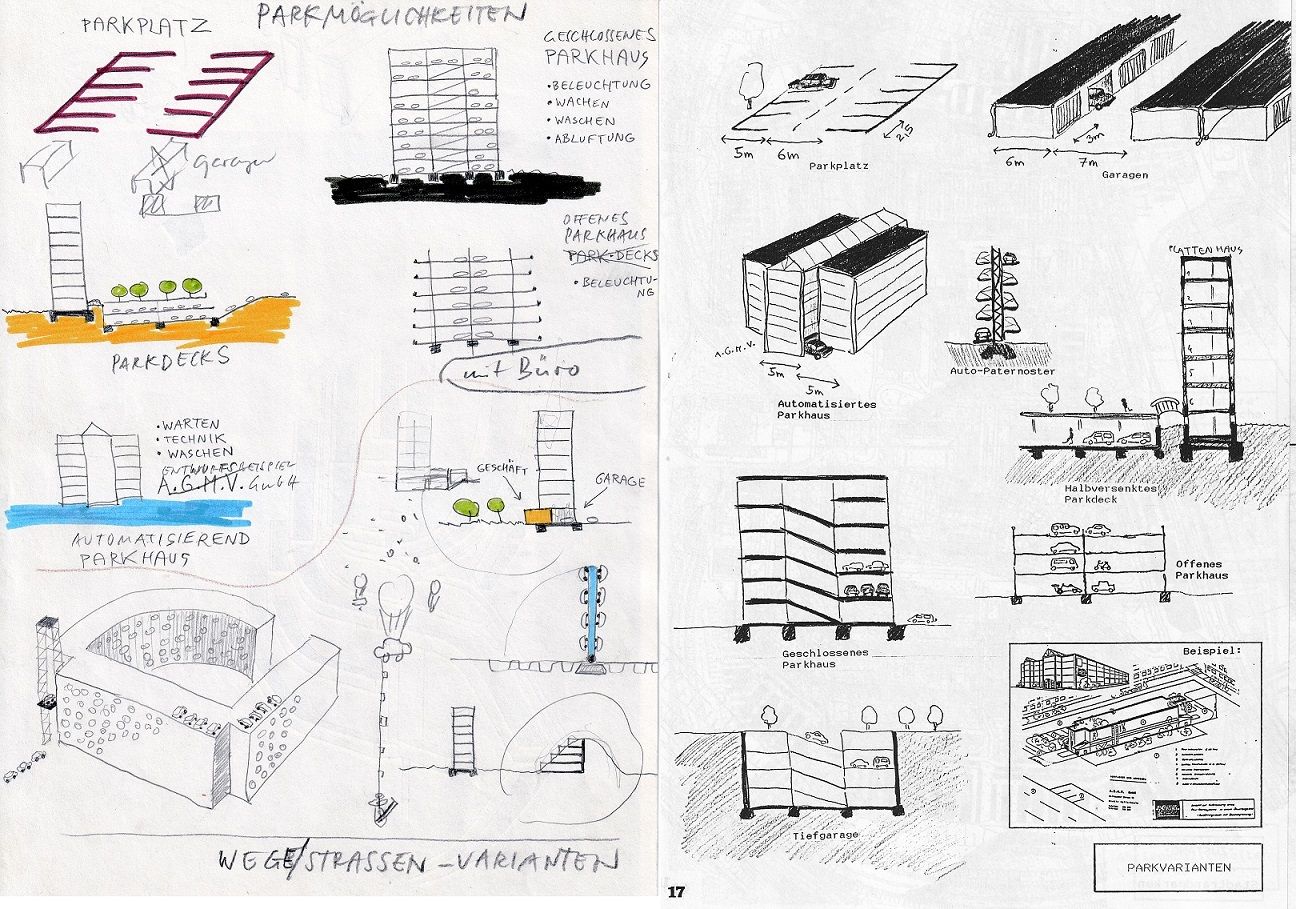 PARKPLATZ
PARKMÖGLICHKEITEN
GESCHLOSSENES
PARKHAUS
•BELEUCHTUNG
•WACHEN
•WASCHEN
•ABLUFTUNG
Garagen
OFFENES
PARKHAUS
PARK-DECKS
•BELEUCHTU-
NG
PARKDECKS
mit Büro
•WARTEN
•TECHNIK
•WASCHEN
ENTWURFSBEISPIEL
A.G.M.V. GmbH
GESCHÄFT
GARAGE
AUTOMATISIEREND
PARKHAUS
WEGE/STRASSEN-VARIANTEN
5m
6m
2,5
Parkplatz
6m
7m
3m
Garagen
A.G.M.V.
5m
5m
Automatisiertes
Parkhaus
Auto-Paternoster
PLATTENHAUS
Halbversenktes
Parkdeck
Geschlossenes
Parkhaus
Offenes
Parkhaus
Beispiel:
Tiefgarage
PARKVARIANTEN
17